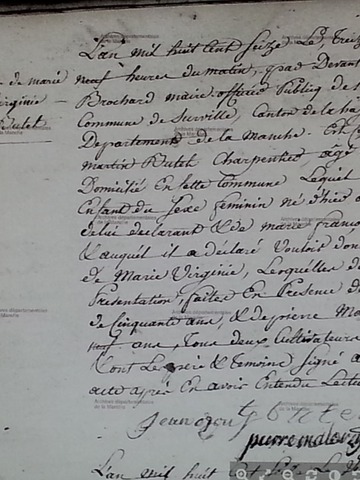 L'an mil huit cent seize le trei
neuf heures du matin, par Devant
Brochard maire officier Public de l
Commune de Surville, Canton de la ha
Departement de la Manche. Est
martin Dutot Charpentier agé
Domicilié En cette Commune Lequel
Enfant du Sexe feminin né d'hier
de lui declarant & de marie franco
& auquel il a déclaré Vouloir don
de Marie Virginie, Lesquelles d
Presentation faites En Presence d
de Cinquante ans, & de pierre Ma
neuf ans, Tous deux Cultivateurs
& ont Le pere & temoins signé a
acte après En avoir Entendu Lect
pierre malor
L'an mil huit cent
de marié
Virginie
Dutot